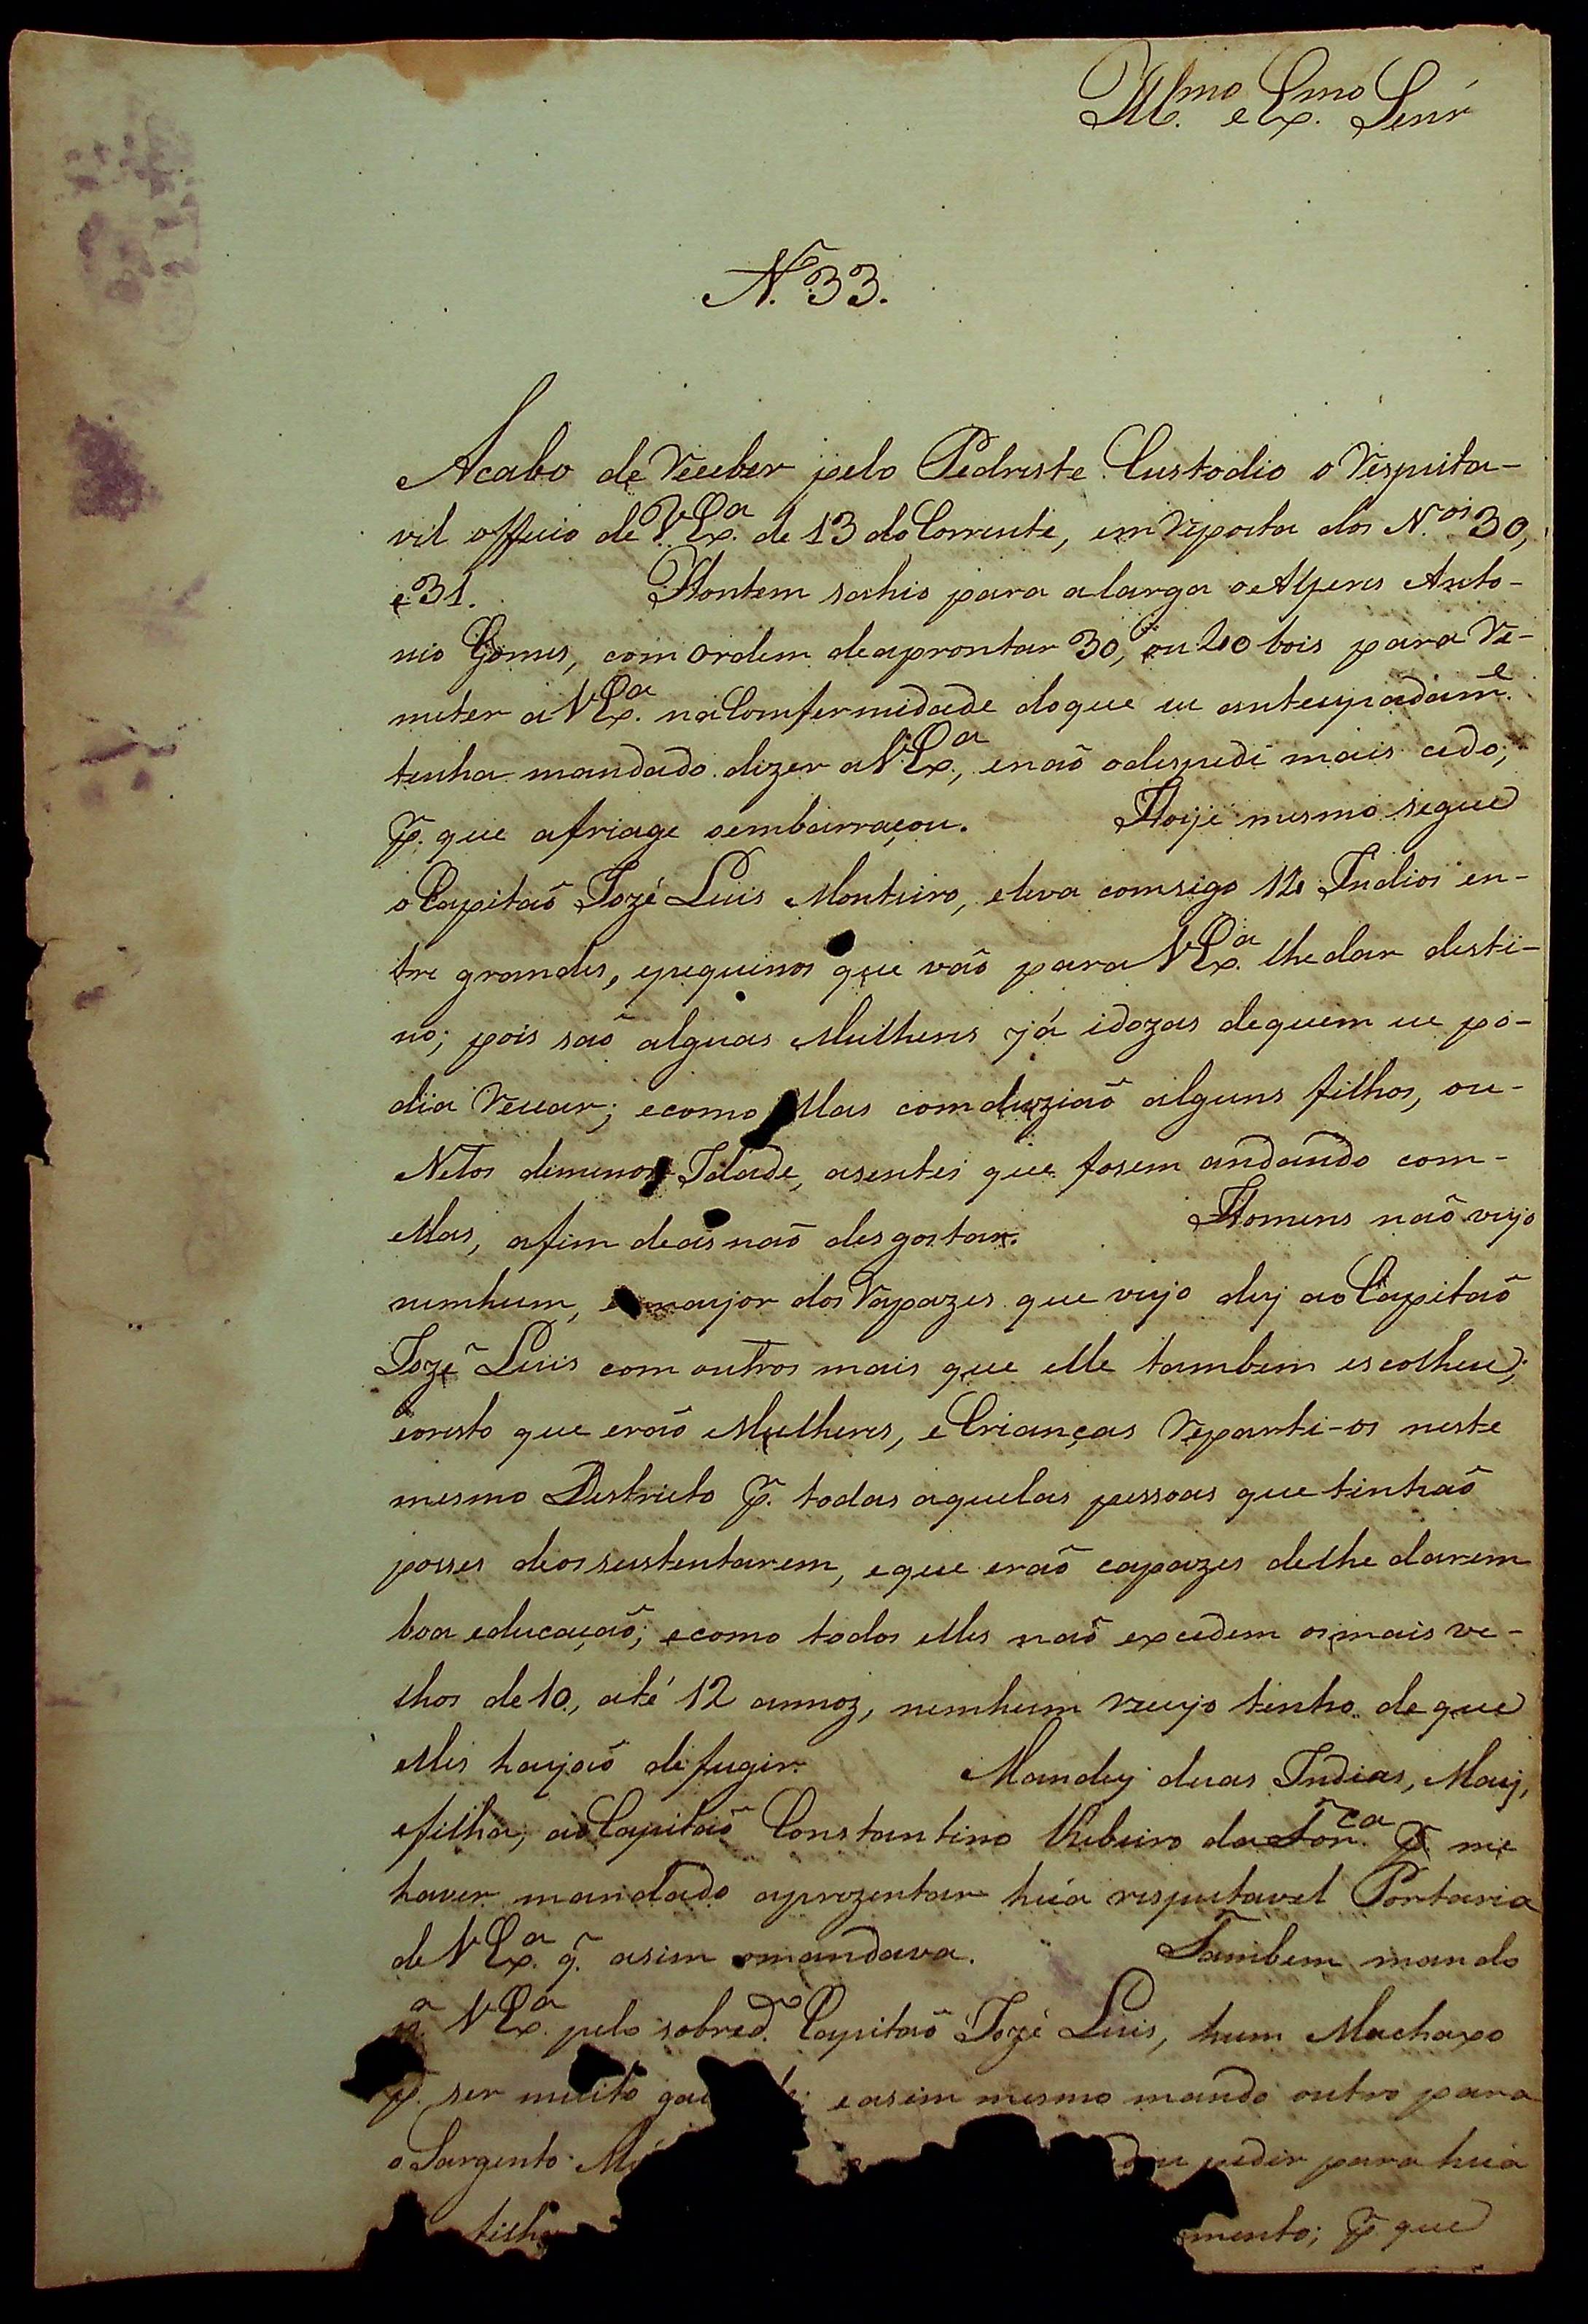 Ill.mo e Ex.mo Senr
N.º 33.
Acabo de Receber pelo Pedreste Custodio o Respeita-
vel officio de V. Ex.a de 13 do Corrente, em Reposta dos N.os 30,
e 31. Hontem sahio para a larga o Alferes Anto-
nio Gomes, com ordem de aprontar 30, ou 40 bois para Re-
meter a V Ex.a na Comfermidade do que eu antecipadam.e
tenha mandado dizer a V. Ex.a, e naõ o despedi mais cedo,
p. que a friage o embarraçou. Hoje mesmo segue
o Capitaõ Jozé Luis Monteiro, e leva comsigo 12 Indios en-
tre grandes, e pequenos que vaõ para V Ex.a lhe dar desti-
no; pois saõ alguas Mulheres já idozas de quem eu po-
dia Recear; e como ellas comduziaõ alguns filhos, ou-
Netos de menor Idade, asentei que fosem andando com-
ellas, a fim de as naõ desgostar. Homens naõ veyo
nemhum, e o mayor dos Rapazes que veyo dey ao Capitaõ
Jozé Luis com outros mais que elle tambem escolheu;
e o resto que eraõ Mulheres, e Crianças Reparti-os neste
mesmo Destricto p. todas aquelas pessoas que tinhaõ
posses de os sustentarem, e que eraõ capazes de lhe darem
boa educaçaõ; e como todos elles naõ excedem os mais ve-
lhos de 10, até 12 annoz, nemhum receyo tenho de que
elles hajaõ de fugir. Mandey duas Indias, May,
e filha, ao Capitaõ Constantino Ribeiro da Fon.ca p. me
haver mandado aprezentar hũa respeitavel Portaria
de V Ex.a q. asim o mandava. Tambem mando
p.a V Ex.a pelo sobred.o Capitaõ Jozé Luis, hum Machaxo
p. ser muito e asim mesmo mando outro para
o Sargento pedir para hũa
mento; p. que